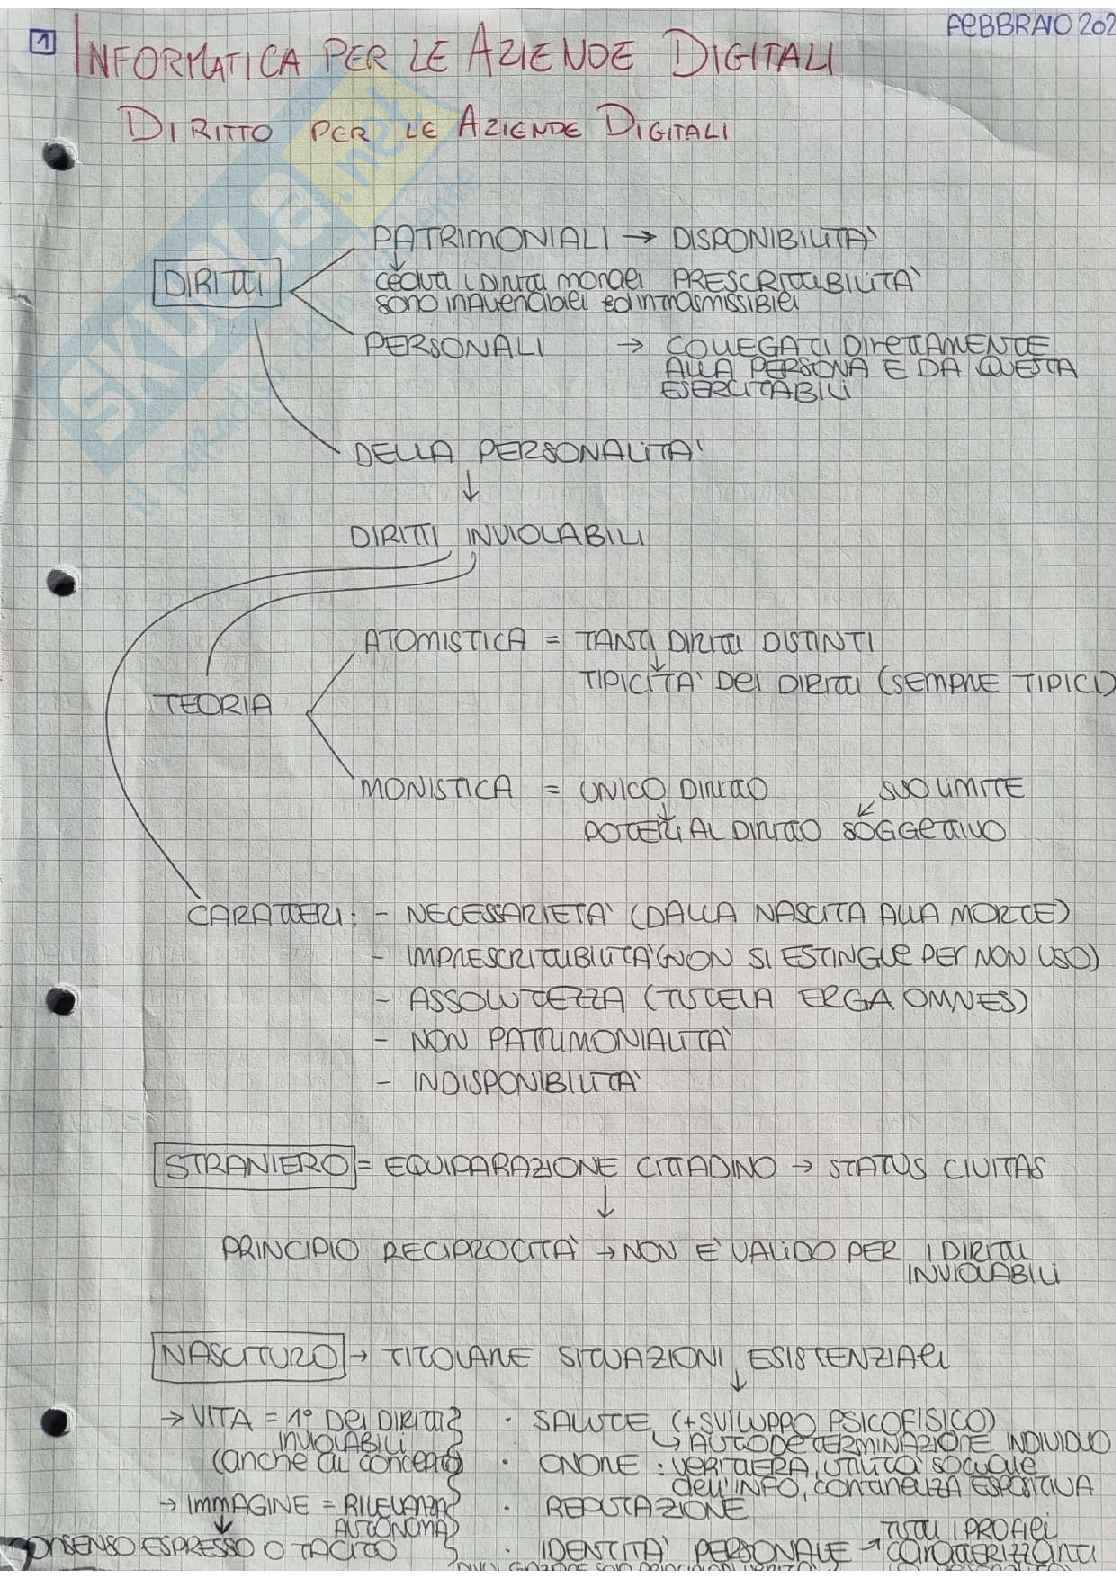 1
FEBBRAIO 202
INFORMATICA PER LE AZIENDE DIGITALI
DIRITTO PER LE AZIENDE DIGITALI
SKUOLA.net
PATRIMONIALI → DISPONIBILITA'
DIRITTI
PRESCRITTIBILITA'
sono inalienabili ed intrasmissibili
PERSONALI → COLLEGATI DIRETTAMENTE
ALLA PERSONA E DA QUESTA
ESERCITABILI
DELLA PERSONALITA'
↓
DIRITTI INVIOLABILI
ATOMISTICA = TANTI DIRITTI DISTINTI
↓
TIPICITA' DEI DIRITTI (SEMPRE TIPICI)
TEORIA
MONISTICA = UNICO DIRITTO SUO LIMITE
POTERI AL DIRITTO SOGGETTIVO
CARATTERI: - NECESSARIETA' (DALLA NASCITA ALLA MORTE)
- IMPRESCRITTIBILITA' (NON SI ESTINGUE PER NON USO)
- ASSOLUTEZZA (TUTELA ERGA OMNES)
- NON PATRIMONIALITA'
- INDISPONIBILITA'
STRANIERO = EQUIPARAZIONE CITTADINO → STATUS CIVITAS
↓
PRINCIPIO RECIPROCITA' → NON E' VALIDO PER I DIRITTI
INVIOLABILI
NASCITURO → TITOLARE SITUAZIONI ESISTENZIALI
↓
→ VITA = 1° DEI DIRITTI · SALUTE (+ SVILUPPO PSICOFISICO)
INVIOLABILI ↳ AUTODETERMINAZIONE INDIVIDUO
(anche al concepito) · ONORE: VERITIERA, UTILITA' SOCIALE
dell'INFO, CONTINENZA ESPOSITIVA
→ IMMAGINE = RILEVANZA · REPUTAZIONE
AUTONOMA TUTTI I PROFILI
CONSENSO ESPRESSO O TACITO · IDENTITA' PERSONALE → CARATTERIZZANTI